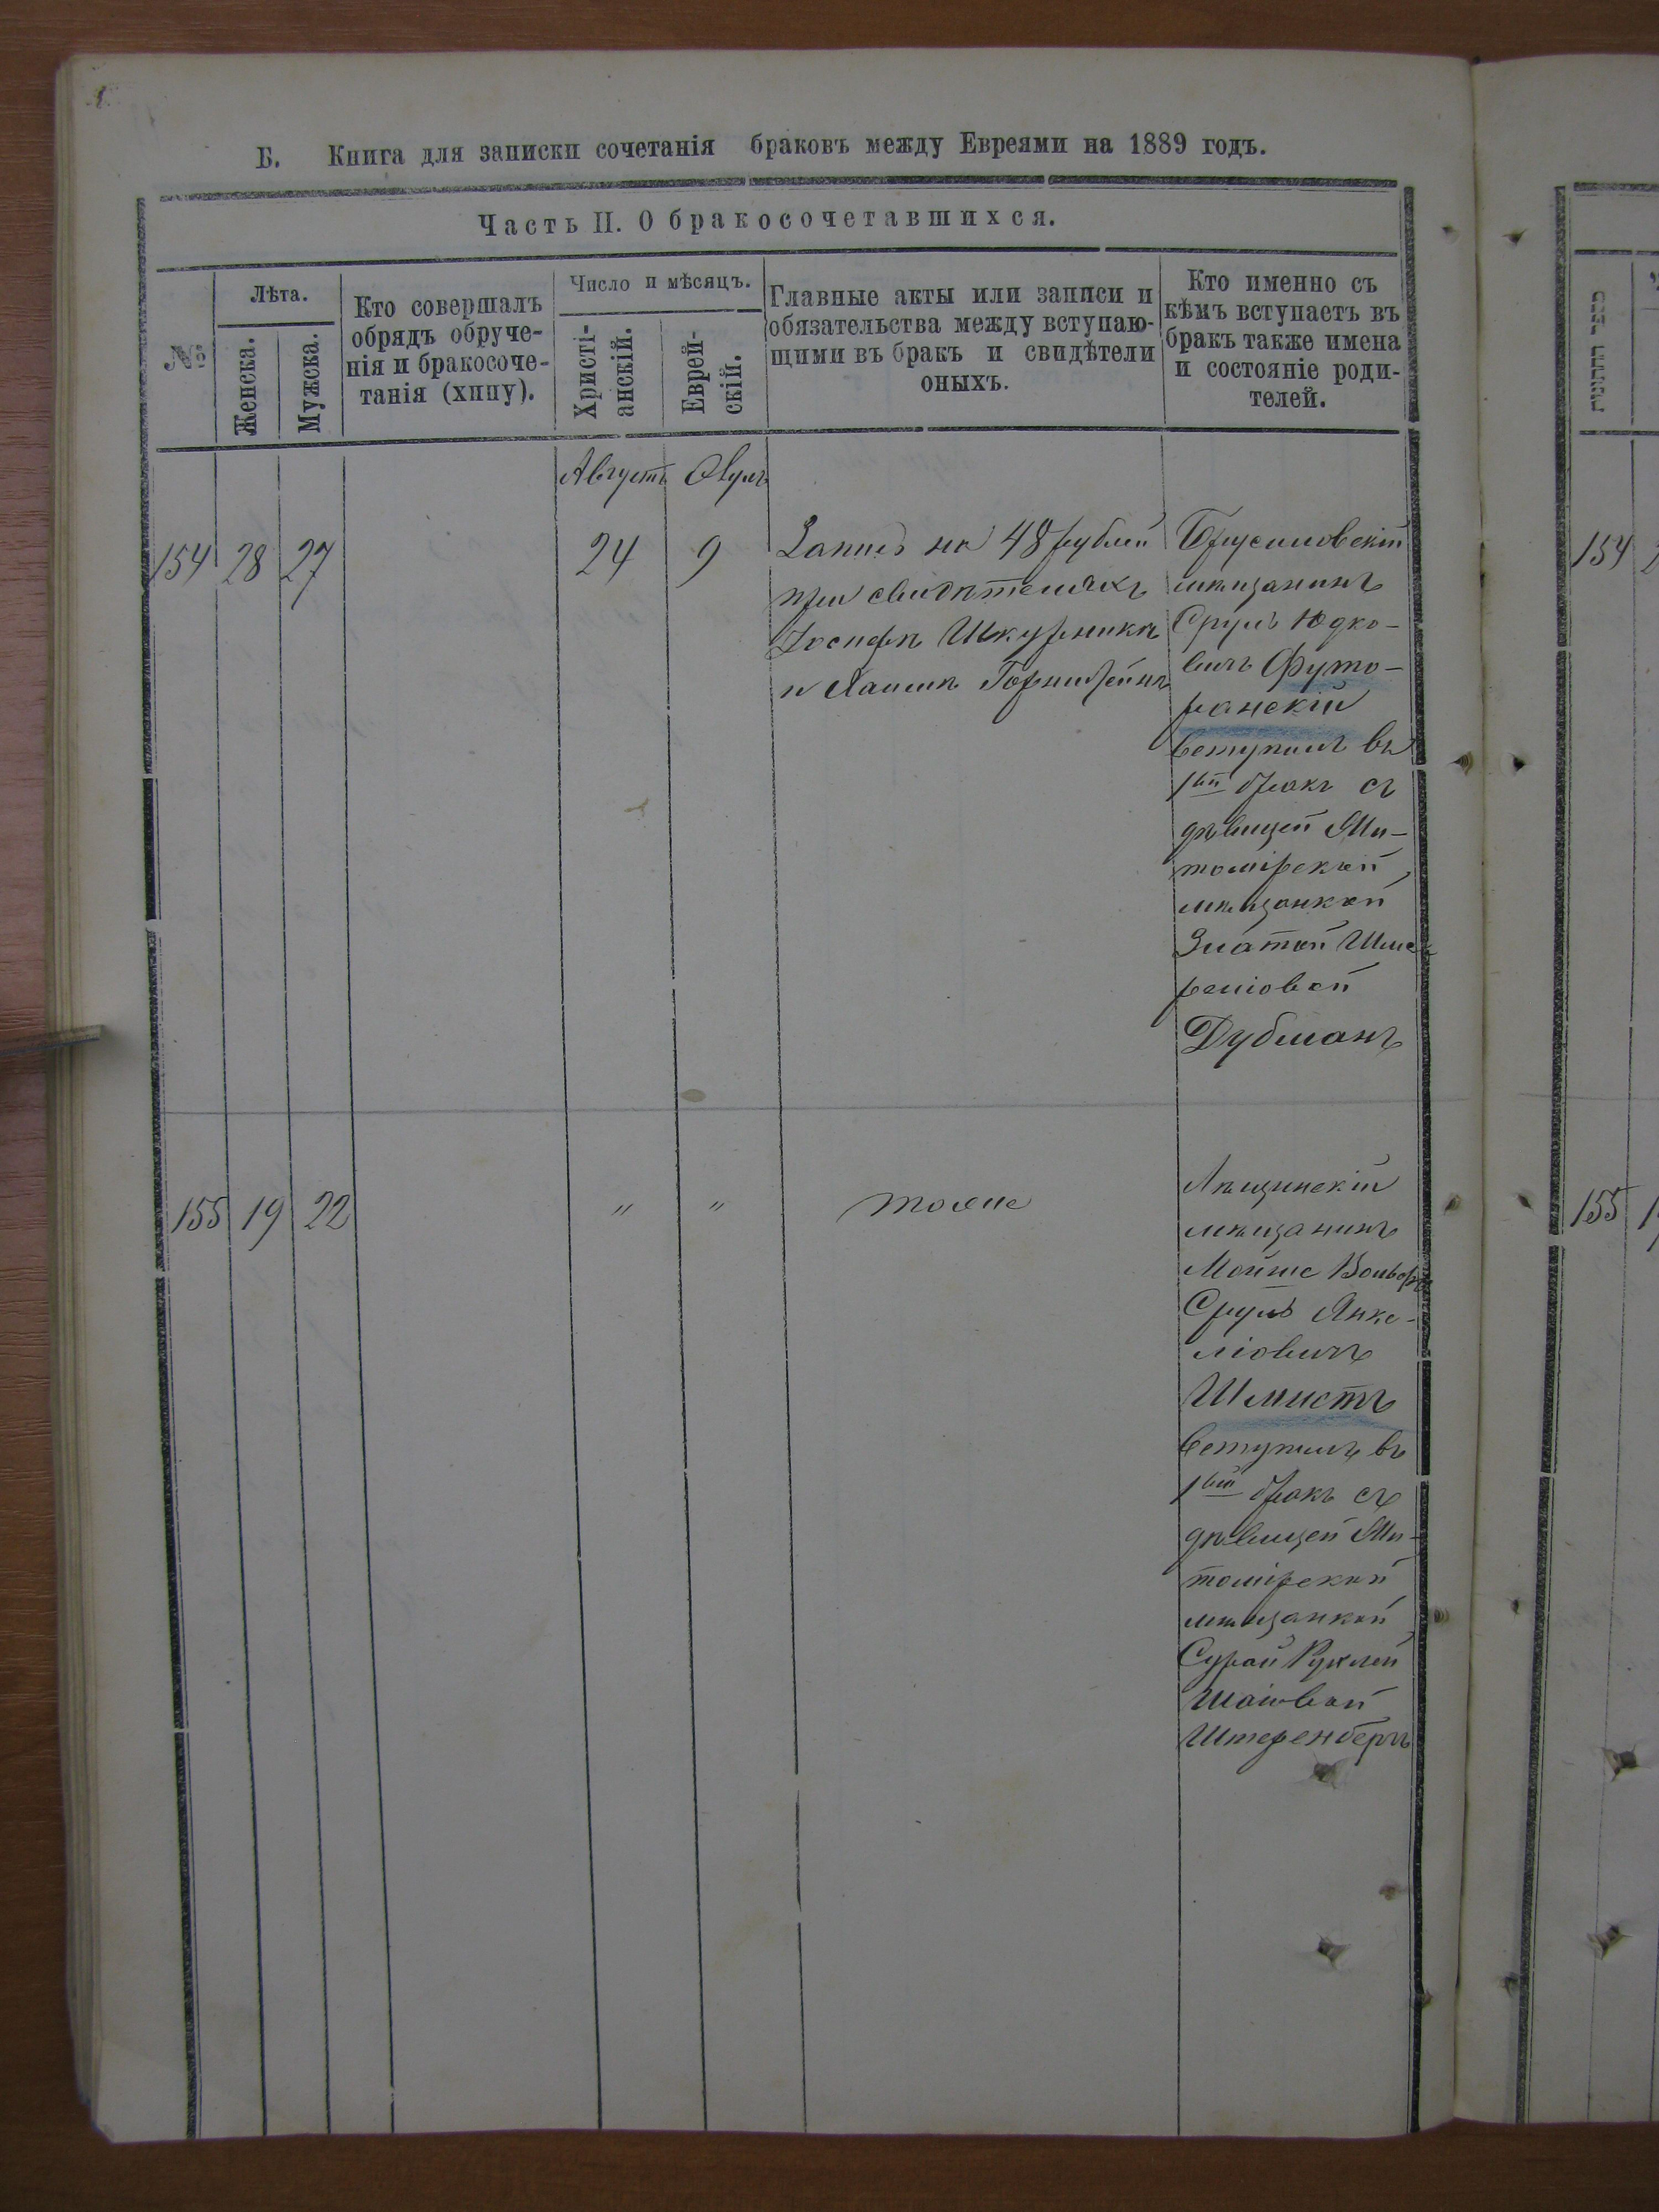 Б. Книга для записки сочетанія браковъ между Евреями на 1889 годъ.
Часть II. О бракосочетавшихся.
№
Лѣта.
Женска.
Мужска.
Кто совершалъ
обрядъ обруче-
нія и бракосоче-
танія (хипу).
Число и мѣсяцъ.
Христі-
анскій.
Еврей-
скій.
Главные акты или записи и
обязательства между вступаю-
щими въ бракъ и свидѣтели
оныхъ.
Кто именно съ
кѣмъ вступаетъ въ
бракъ также имена
и состояніе роди-
телей.
Августъ
154 28 27
24 9
Запись на 48 рублей
при свидѣтеляхъ
Іосифъ Шкурника
и
Брусиловскій
мѣщанинъ
Сруль Юдко-
вичъ Футо-
ранскій
вступилъ въ
1ый бракъ съ
дѣвицей Жи-
томірской
мѣщанкой
Златой
Дубманъ
155 19 22
" "
тоже
Лѣщинскій
мѣщанинъ
Мойше Вольфъ
Сруль Янке-
ліовичъ
Шмистъ
вступилъ въ
1ый бракъ съ
дѣвицей Жи-
томірской
мѣщанкой
Сурой Рухлей
Шаіовой
Штеренбергъ
154
155